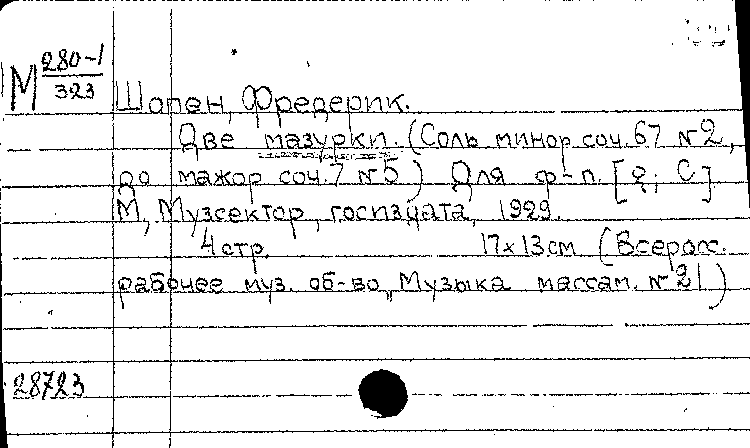 М 280-1/323
Шопен, Фредерик.
Две мазурки. (Соль минор соч. 67 № 2,
до мажор соч. 7 № 5) Для ф-п. [g; C]
М, Музсектор, госиздата, 1929.
4 стр. 17 x 13 см (Всеросс.
рабочее муз. об-во „Музыка массам. № 21)
28723